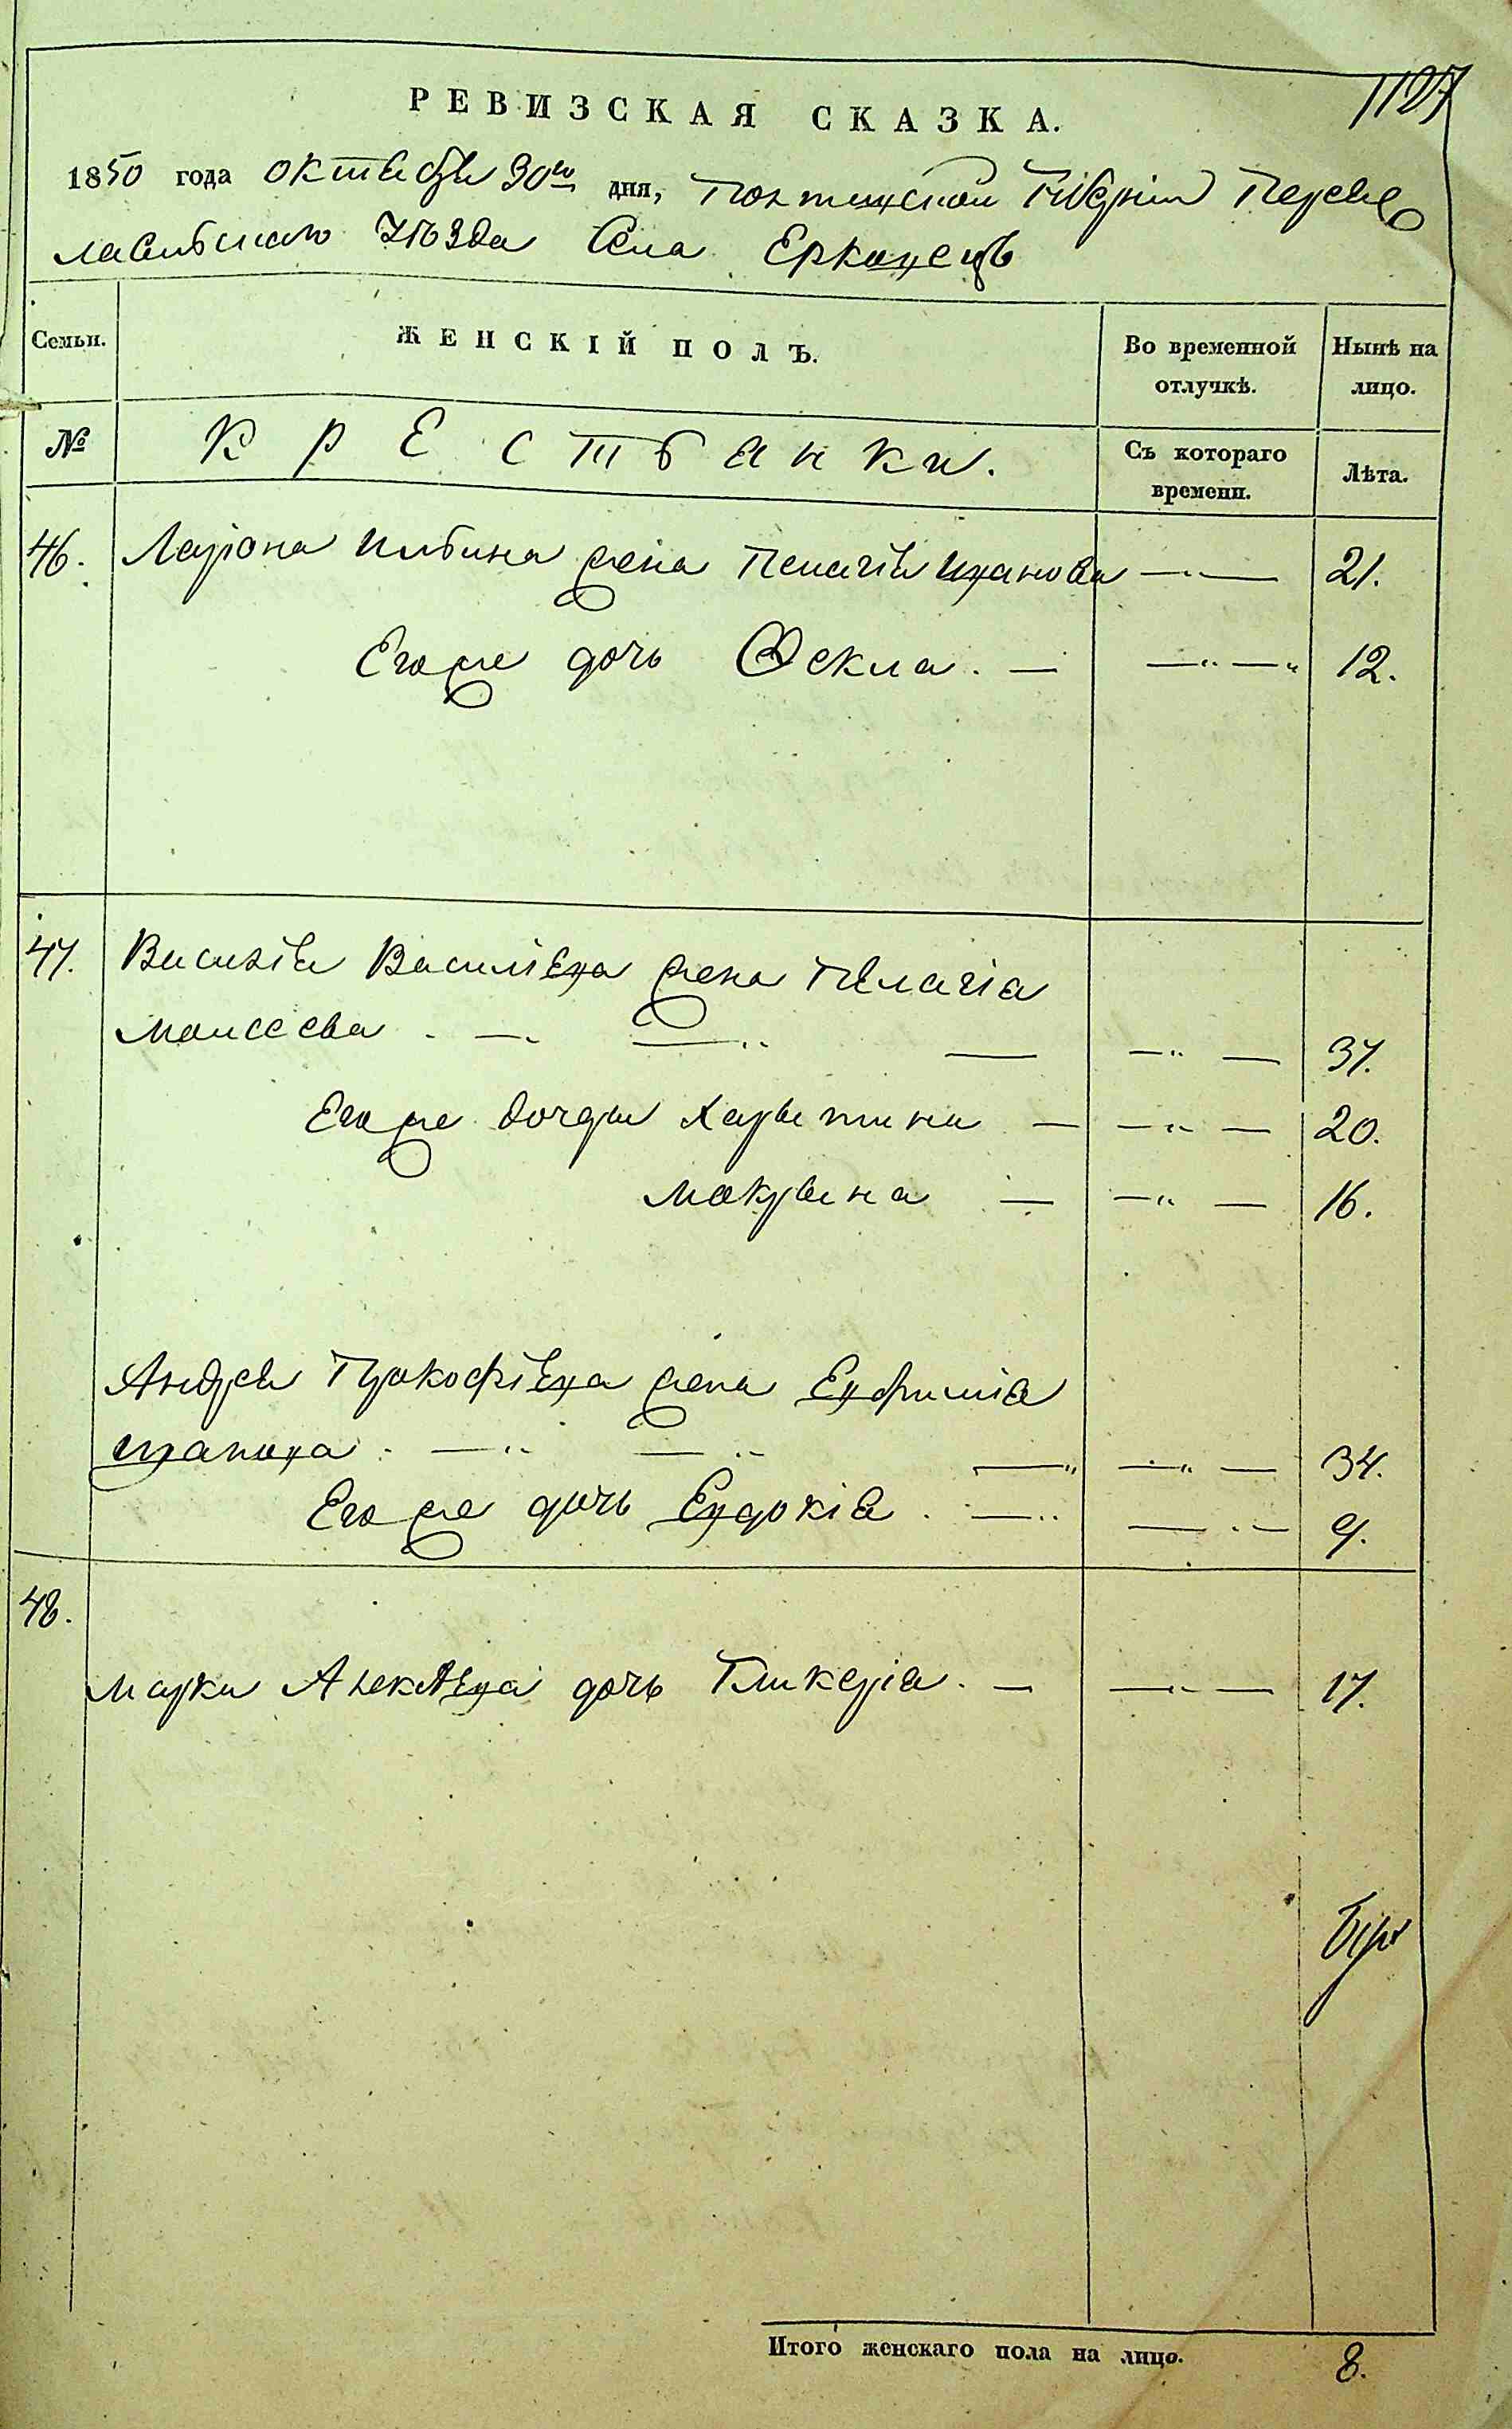 1107
РЕВИЗСКАЯ СКАЗКА.
1850 года октября 30го дня, Полтавской Губернiи Перея
славского Уѣзда Села Ерковецъ
Семьи. ЖЕНСКIЙ ПОЛЪ. Во временной отлучкѣ. Нынѣ на лицо.
№ Крестьянки. Съ котораго времени. Лѣта.
46. Лариона Ильина жена Пелагiя Иванова — 21.
Его же дочь Фекла. — — 12.
47. Василiя Василiева жена Пелагiа
Моисеева — — 37.
Его же дочери Харитина — — 20.
Макрина — — 16.
Андрея Прокофiева жена Евфимiа
Иванова — — 34.
Его же дочь Евдокiа. — — 9.
48.
Марка Алексѣева дочь Гликерiа. — — 17.
Итого женскаго пола на лицо. 8.